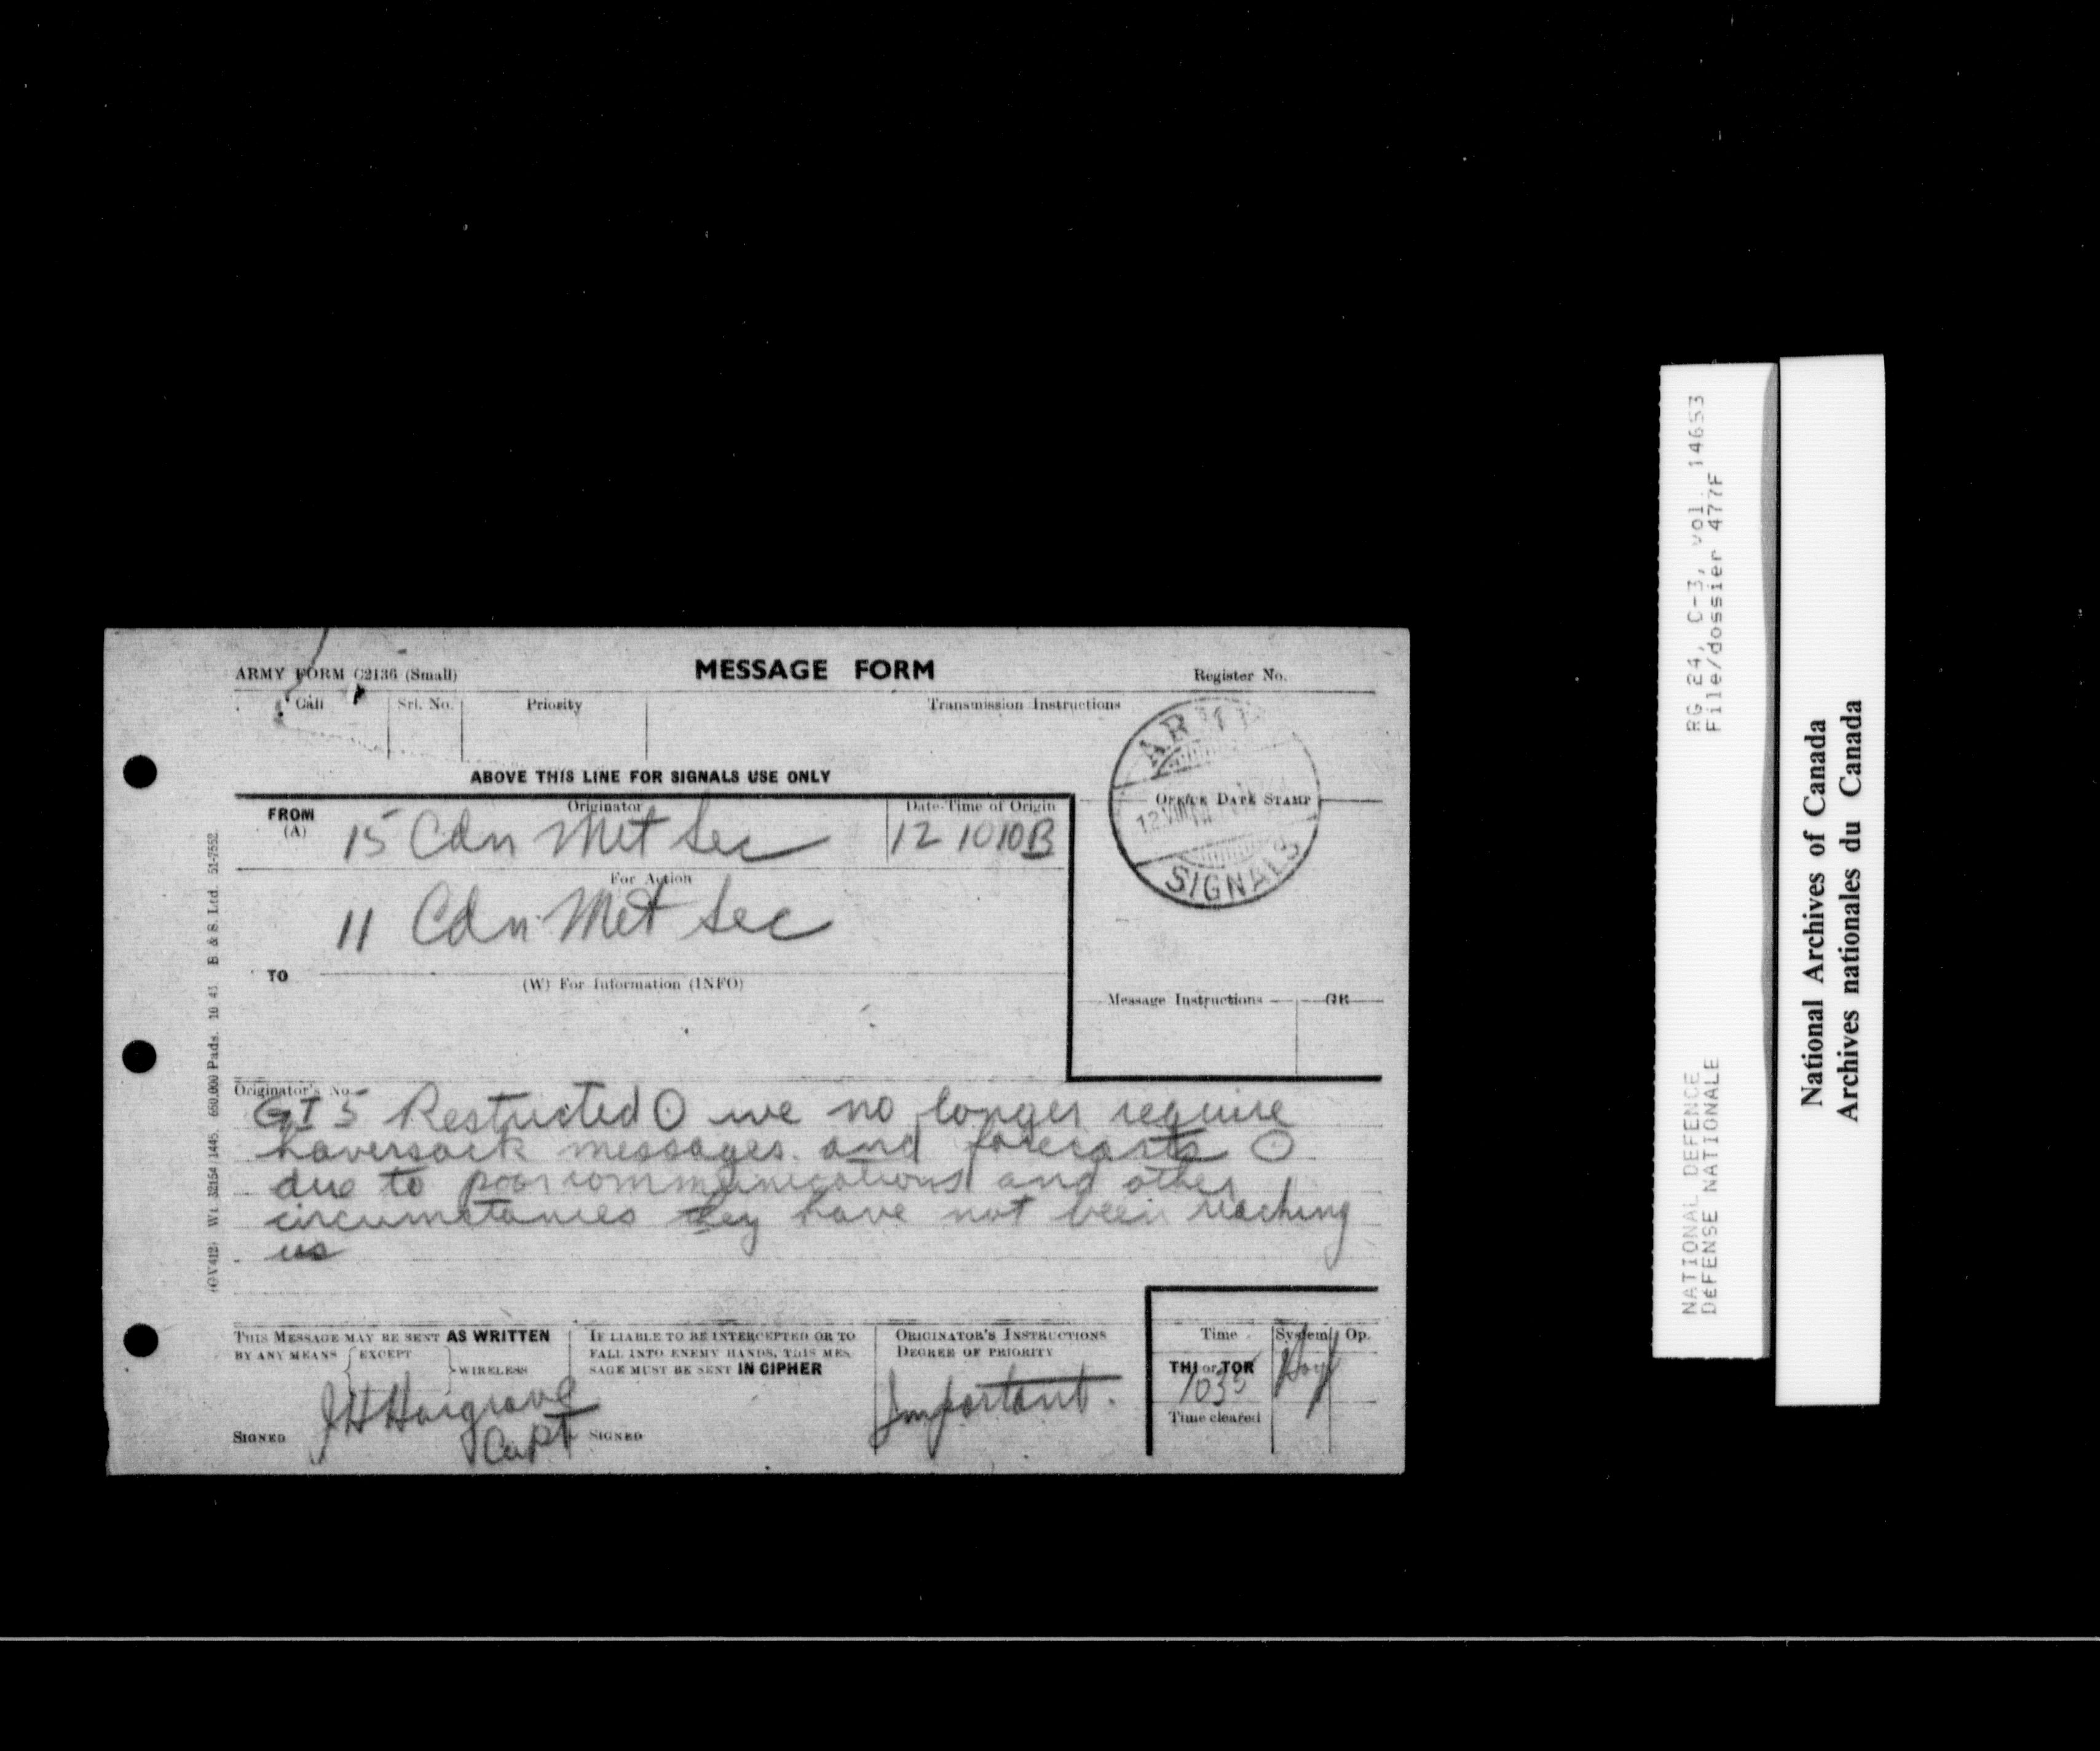 ARMY FORM C2136 (Small)
MESSAGE FORM
Register No.
Call
Srl. No.
Priority
Transmission Instructions
ABOVE THIS LINE FOR SIGNALS USE ONLY
FROM
(A)
Originator
15 Cdn Met Sec
Date-Time of Origin
12 1010B
OFFICE DATE STAMP
ARMY
SIGNALS
For Action
11 Cdn Met Sec
TO
(W) For Information (INFO)
Message Instructions
GR
Originator's No.
GI 5 Restricted O we no longer require
haversack messages and forecasts O
due to poor communications and other
circumstances they have not been reaching
us
THIS MESSAGE MAY BE SENT AS WRITTEN
BY ANY MEANS EXCEPT
WIRELESS
JH Hargrave
Capt
SIGNED
IF LIABLE TO BE INTERCEPTED OR TO
FALL INTO ENEMY HANDS, THIS MES-
SAGE MUST BE SENT IN CIPHER
SIGNED
ORIGINATOR'S INSTRUCTIONS
DEGREE OF PRIORITY
Important.
Time
System
Op.
THI or TOR
1035
Time cleared
(OV412) Wt. 32154 1445. 650,000 Pads. 10 43 B & S. Ltd. 51-7552
RG 24, C-3, vol. 14653
File/dossier 477F
NATIONAL DEFENCE
DEFENSE NATIONALE
National Archives of Canada
Archives nationales du Canada